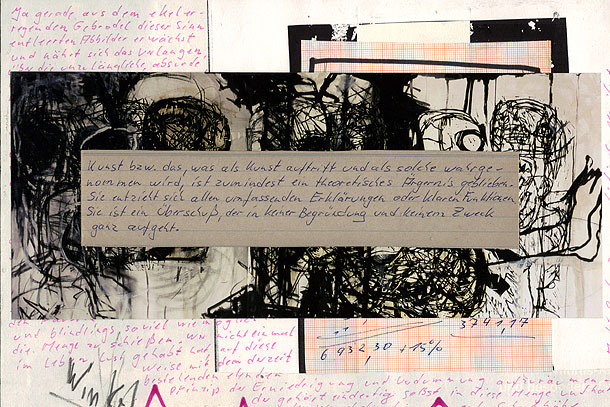 Ja gerade aus dem ekeler-
regenden Gebrodel dieser Sinn
entleerten Abbilder erwächst
und nährt sich das Verlangen
über die unzulängliche, absurde
Kunst bzw. das, was als Kunst auftritt und als solche wahrge-
nommen wird, ist zumindest ein theoretisches Ärgernis geblieben.
Sie entzieht sich allen umfassenden Erklärungen oder klaren Funktionen.
Sie ist ein Überschuß, der in keiner Begründung und keinem Zweck
ganz aufgeht.
und blindlings, soviel wie möglich
die Menge zu schießen. Wer nicht einmal
im Leben Lust gehabt hat, auf diese
Weise mit dem derzeit
bestehenden elenden
Prinzip der Erniedrigung und Verdummung aufzuräumen
du gehört eindeutig selbst in diese Menge und
374117
693230 + 15%